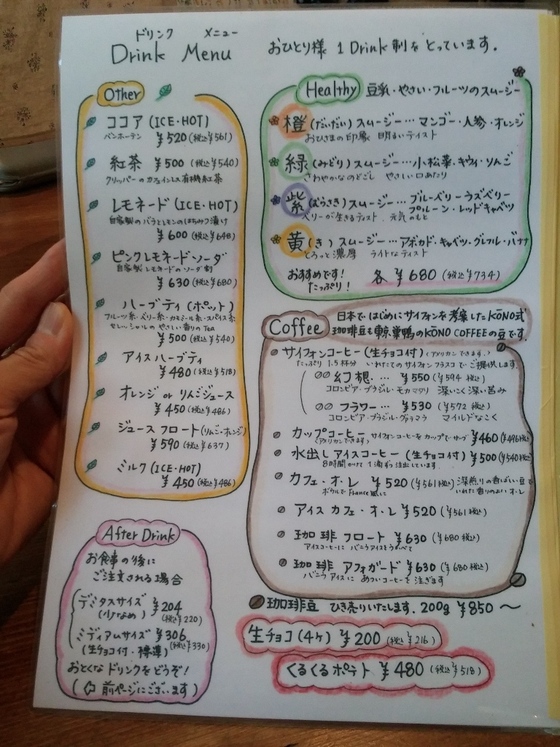 ドリンク メニュー
Drink Menu
おひとり様 1 Drink 制をとっています.
Other
ココア (ICE・HOT)
バンホーテン ¥520 (税込¥561)
紅茶 ¥500 (税込¥540)
クリッパーのカフェインレス有機紅茶
レモネード (ICE・HOT)
¥600 (税込¥648)
ピンクレモネードソーダ
自家製レモネードのソーダ割
¥630 (税込¥680)
ハーブティ (ポット)
¥500 (税込¥540)
アイスハーブティ
¥480 (税込¥518)
オレンジ or りんごジュース
¥450 (税込¥486)
ジュースフロート (りんご・オレンジ)
¥590 (税込¥637)
ミルク (ICE・HOT)
¥450 (税込¥486)
After Drink
お食事の後に
ご注文される場合
デミタスサイズ ¥204
(少なめ) (税込¥220)
ミディアムサイズ ¥306
(生チョコ付・標準) (税込¥330)
おとくなドリンクをどうぞ!
(前ページにございます)
Healthy 豆乳・やさい・フルーツのスムージー
橙 (だいだい) スムージー… マンゴー・人参・オレンジ
おひさまの印象 明るいテイスト
緑 (みどり) スムージー… 小松菜・キウイ・りんご
さわやかなのどごし やさしい口あたり
紫 (むらさき) スムージー… ブルーベリー・ラズベリー
プルーン・レッドキャベツ
ベリーが生きるテイスト 元気のもと
黄 (き) スムージー… アボカド・キャベツ・グレフル・バナナ
とろっと濃厚 ライトなテイスト
おすすめです!
たっぷり! 各 ¥680 (税込¥734)
Coffee 日本ではじめにサイフォンを考案したKONO式
珈琲豆も東京巣鴨のKONO COFFEEの豆です.
サイフォンコーヒー (生チョコ付) (アメリカンできます.)
たっぷり 1.5杯分 いれたてのサイフォンフラスコでご提供します
幻想… ¥550 (¥594 税込)
コロンビア・ブラジル・モカマタリ 深いこく 深い苦み
フラワー… ¥530 (¥572 税込)
コロンビア・ブラジル・グァテマラ マイルドなこく
カップコーヒー ¥460 (¥496税込)
(アメリカンできます) サイフォンコーヒーをカップでサーブ
水出しアイスコーヒー (生チョコ付) ¥500 (¥540税込)
8時間かけて1滴ずつ注出しています.
カフェ・オ・レ ¥520 (¥561税込)
ボウルでFrance風に
アイスカフェ・オ・レ ¥520 (¥561税込)
珈琲フロート ¥630 (¥680税込)
アイスコーヒーにバニラアイスをうかべて
珈琲アフォガード ¥630 (¥680税込)
バニラアイスにあついコーヒーを注ぎます
珈琲豆 ひき売りいたします. 200g ¥850 ～
生チョコ (4ケ) ¥200 (税込¥216)
くるくるポテト ¥480 (税込¥518)